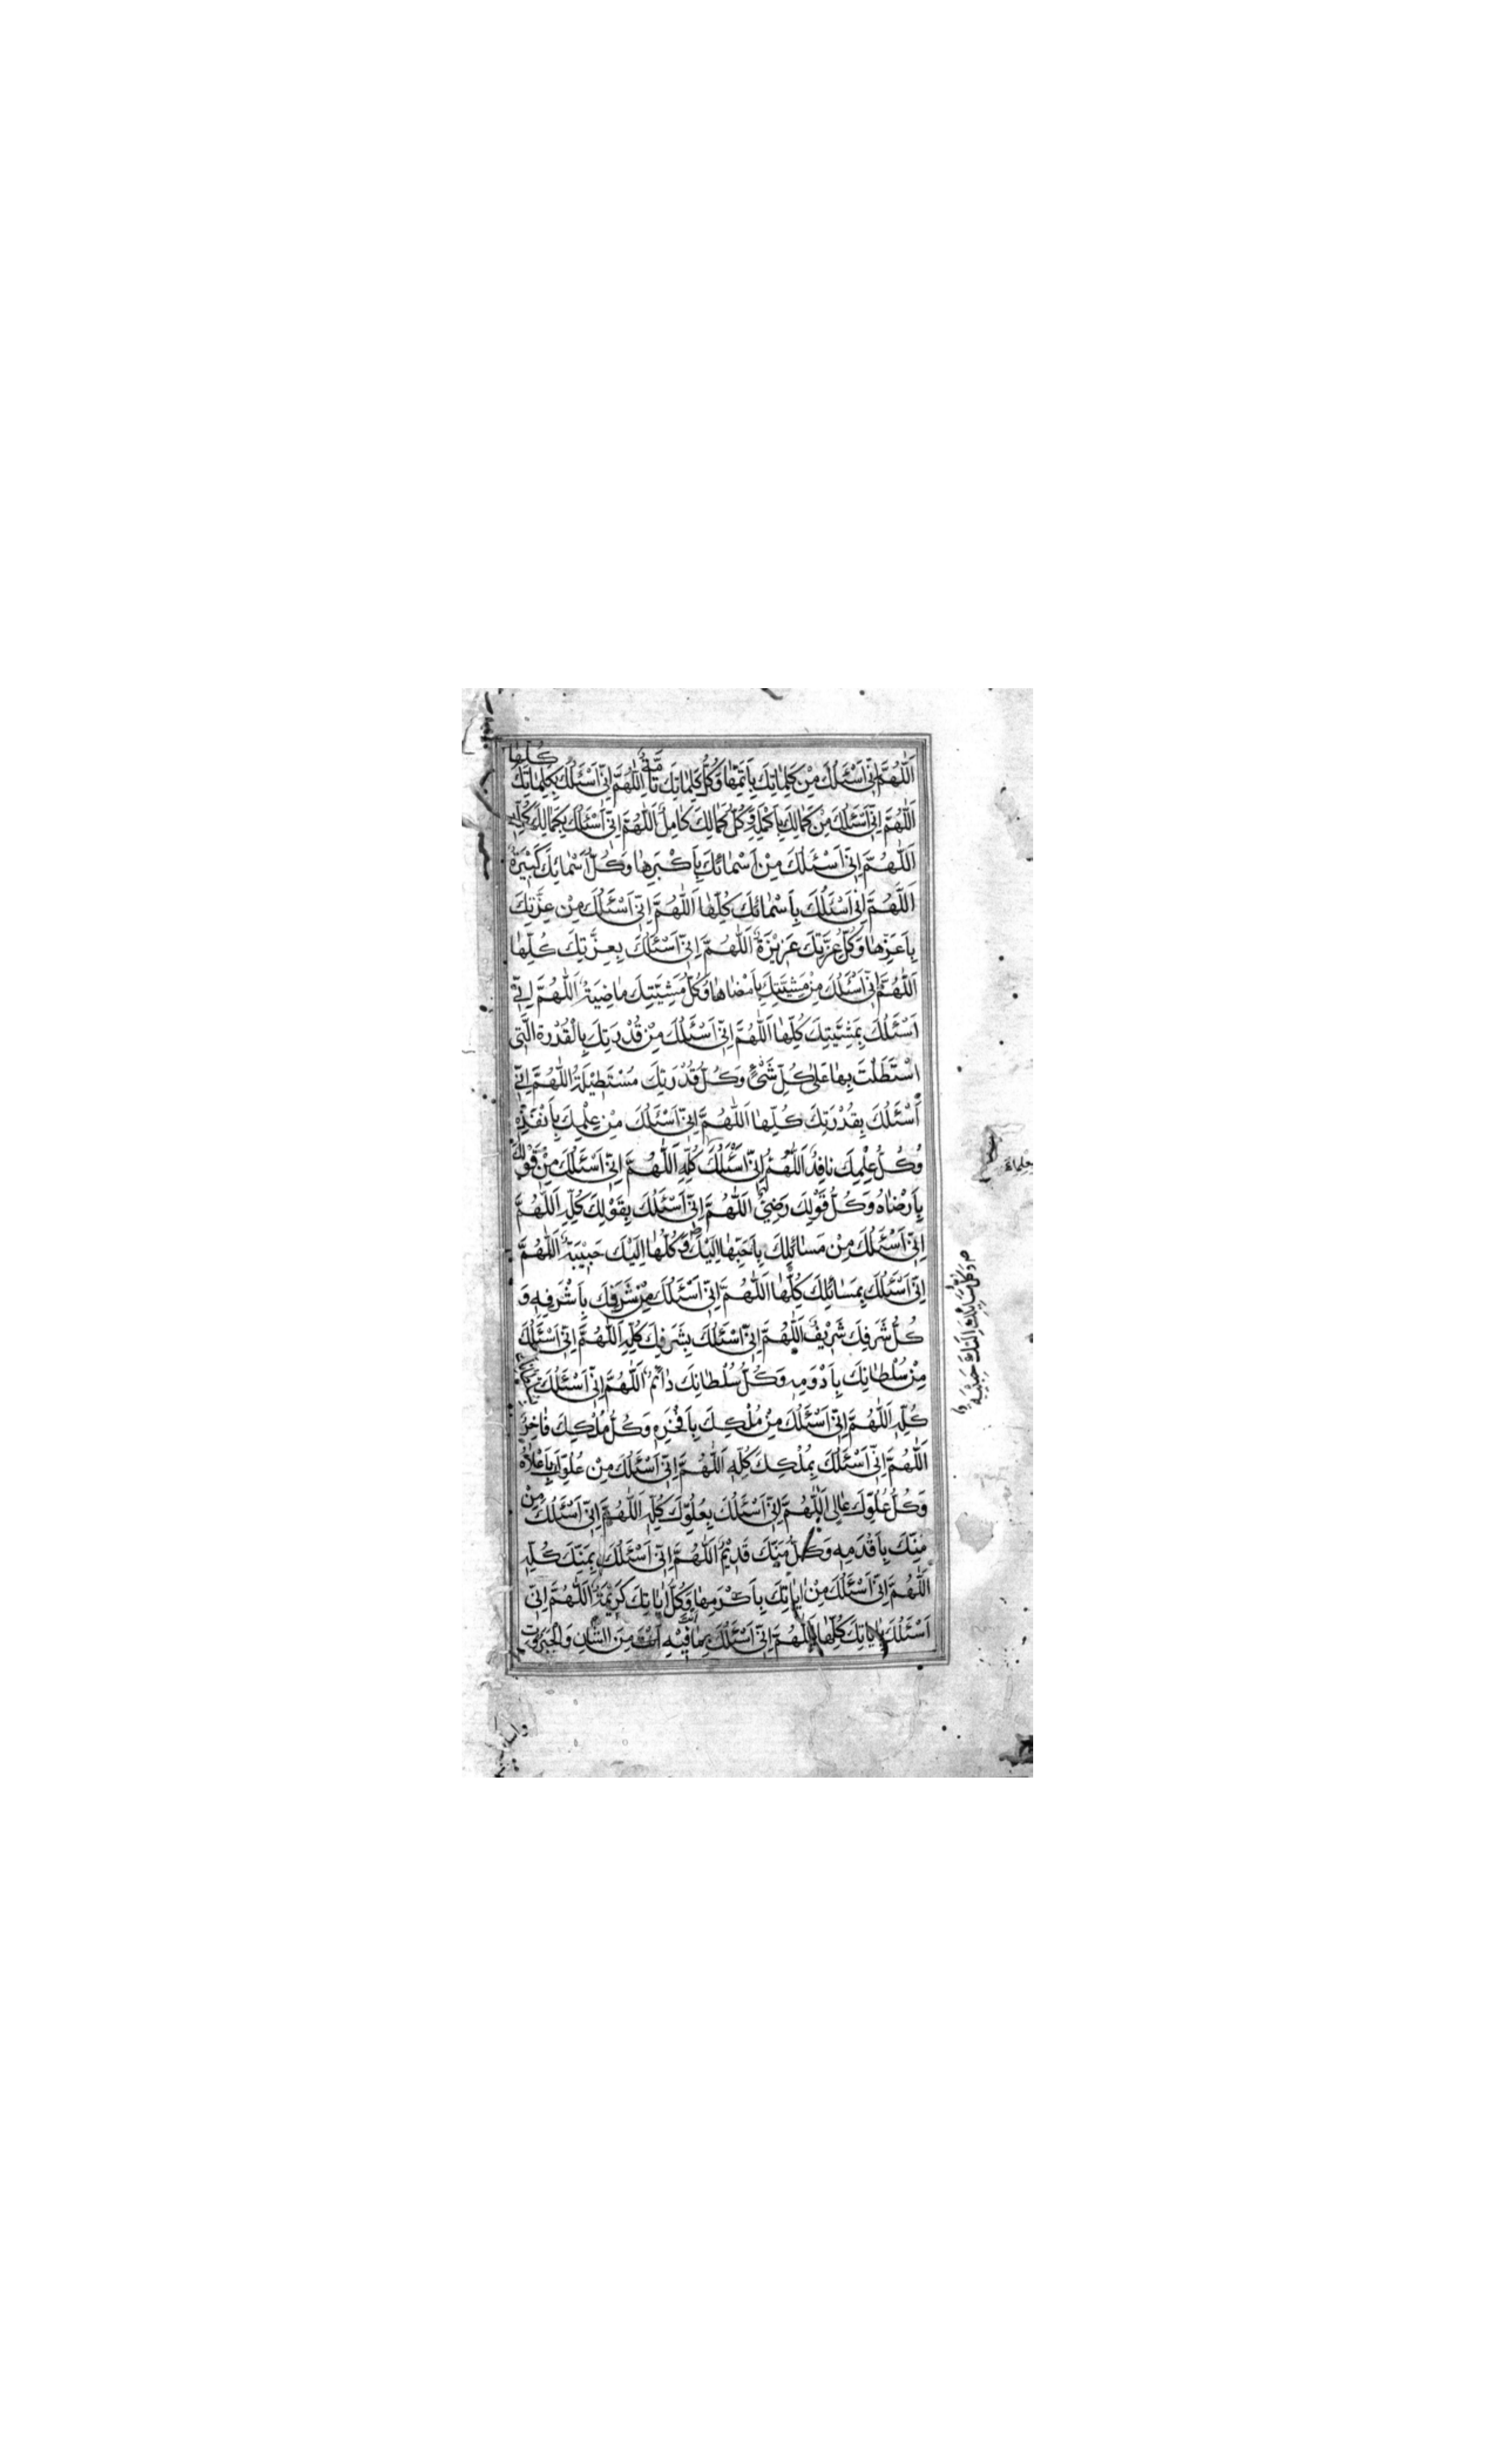 اَللّٰهُمَّ اِنّى اَسْئَلُكَ مِنْ كَلِمٰاتِكَ بِاَتَمِّهٰا وَكُلُّ كَلِمٰاتِكَ تٰامَّةٌ اَللّٰهُمَّ اِنّى اَسْئَلُكَ بِكَلِمٰاتِكَ كُلِّهٰا
اَللّٰهُمَّ اِنّى اَسْئَلُكَ مِنْ كَمٰالِكَ بِاَكْمَلِهِ وَكُلُّ كَمٰالِكَ كٰامِلٌ اَللّٰهُمَّ اِنّى اَسْئَلُكَ بِكَمٰالِكَ كُلِّهِ
اَللّٰهُمَّ اِنّى اَسْئَلُكَ مِنْ اَسْمٰائِكَ بِاَكْبَرِهٰا وَكُلُّ اَسْمٰائِكَ كَبيْرَةٌ
اَللّٰهُمَّ اِنّى اَسْئَلُكَ بِاَسْمٰائِكَ كُلِّهٰا اَللّٰهُمَّ اِنّى اَسْئَلُكَ مِنْ عِزَّتِكَ
بِاَعَزِّهٰا وَكُلُّ عِزَّتِكَ عَزيْزَةٌ اَللّٰهُمَّ اِنّى اَسْئَلُكَ بِعِزَّتِكَ كُلِّهٰا
اَللّٰهُمَّ اِنّى اَسْئَلُكَ مِنْ مَشِيَّتِكَ بِاَمْضٰاهٰا وَكُلُّ مَشِيَّتِكَ مٰاضِيَةٌ اَللّٰهُمَّ اِنّى
اَسْئَلُكَ بِمَشِيَّتِكَ كُلِّهٰا اَللّٰهُمَّ اِنّى اَسْئَلُكَ مِنْ قُدْرَتِكَ بِالْقُدْرَةِ الَّتى
اسْتَطَلْتَ بِهٰا عَلىٰ كُلِّ شَىْءٍ وَكُلُّ قُدْرَتِكَ مُسْتَطيْلَةٌ اَللّٰهُمَّ اِنّى
اَسْئَلُكَ بِقُدْرَتِكَ كُلِّهٰا اَللّٰهُمَّ اِنّى اَسْئَلُكَ مِنْ عِلْمِكَ بِاَنْفَذِهِ
وَكُلُّ عِلْمِكَ نافِذٌ اَللّٰهُمَّ اِنّى اَسْئَلُكَ كُلِّهِ اَللّٰهُمَّ اِنّى اَسْئَلُكَ مِنْ قَوْلِكَ
بِاَرْضٰاهُ وَكُلُّ قَوْلِكَ رَضِىٌّ اَللّٰهُمَّ اِنّى اَسْئَلُكَ بِقَوْلِكَ كُلِّهِ اَللّٰهُمَّ
اِنّى اَسْئَلُكَ مِنْ مَسٰائِلِكَ بِاَحَبِّهٰا اِلَيْكَ وَكُلُّهٰا اِلَيْكَ حَبيْبَةٌ اَللّٰهُمَّ
اِنّى اَسْئَلُكَ بِمَسٰائِلِكَ كُلِّهٰا اَللّٰهُمَّ اِنّى اَسْئَلُكَ مِنْ شَرَفِكَ بِاَشْرَفِهِ وَ
كُلُّ شَرَفِكَ شَريْفٌ اَللّٰهُمَّ اِنّى اَسْئَلُكَ بِشَرَفِكَ كُلِّهِ اَللّٰهُمَّ اِنّى اَسْئَلُكَ
مِنْ سُلْطٰانِكَ بِاَدْوَمِهِ وَكُلُّ سُلْطٰانِكَ دٰائِمٌ اَللّٰهُمَّ اِنّى اَسْئَلُكَ
كُلِّهِ اَللّٰهُمَّ اِنّى اَسْئَلُكَ مِنْ مُلْكِكَ بِاَفْخَرِهِ وَكُلُّ مُلْكِكَ فٰاخِرٌ
اَللّٰهُمَّ اِنّى اَسْئَلُكَ بِمُلْكِكَ كُلِّهِ اَللّٰهُمَّ اِنّى اَسْئَلُكَ مِنْ عُلُوِّكَ بِاَعْلٰاهُ
وَكُلُّ عُلُوِّكَ عٰالِى اَللّٰهُمَّ اِنّى اَسْئَلُكَ بِعُلُوِّكَ كُلِّهِ اَللّٰهُمَّ اِنّى اَسْئَلُكَ مِنْ
مَنِّكَ بِاَقْدَمِهِ وَكُلُّ مَنِّكَ قَديْمٌ اَللّٰهُمَّ اِنّى اَسْئَلُكَ بِمَنِّكَ كُلِّهِ
اَللّٰهُمَّ اِنّى اَسْئَلُكَ مِنْ اٰيٰاتِكَ بِاَكْرَمِهٰا وَكُلُّ اٰيٰاتِكَ كَريْمَةٌ اَللّٰهُمَّ اِنّى
اَسْئَلُكَ بِاٰيٰاتِكَ كُلِّهٰا اَللّٰهُمَّ اِنّى اَسْئَلُكَ بِمٰا فيْهِ اَنْتَ مِنَ الشَّانِ وَالْجَبَرُوتِ